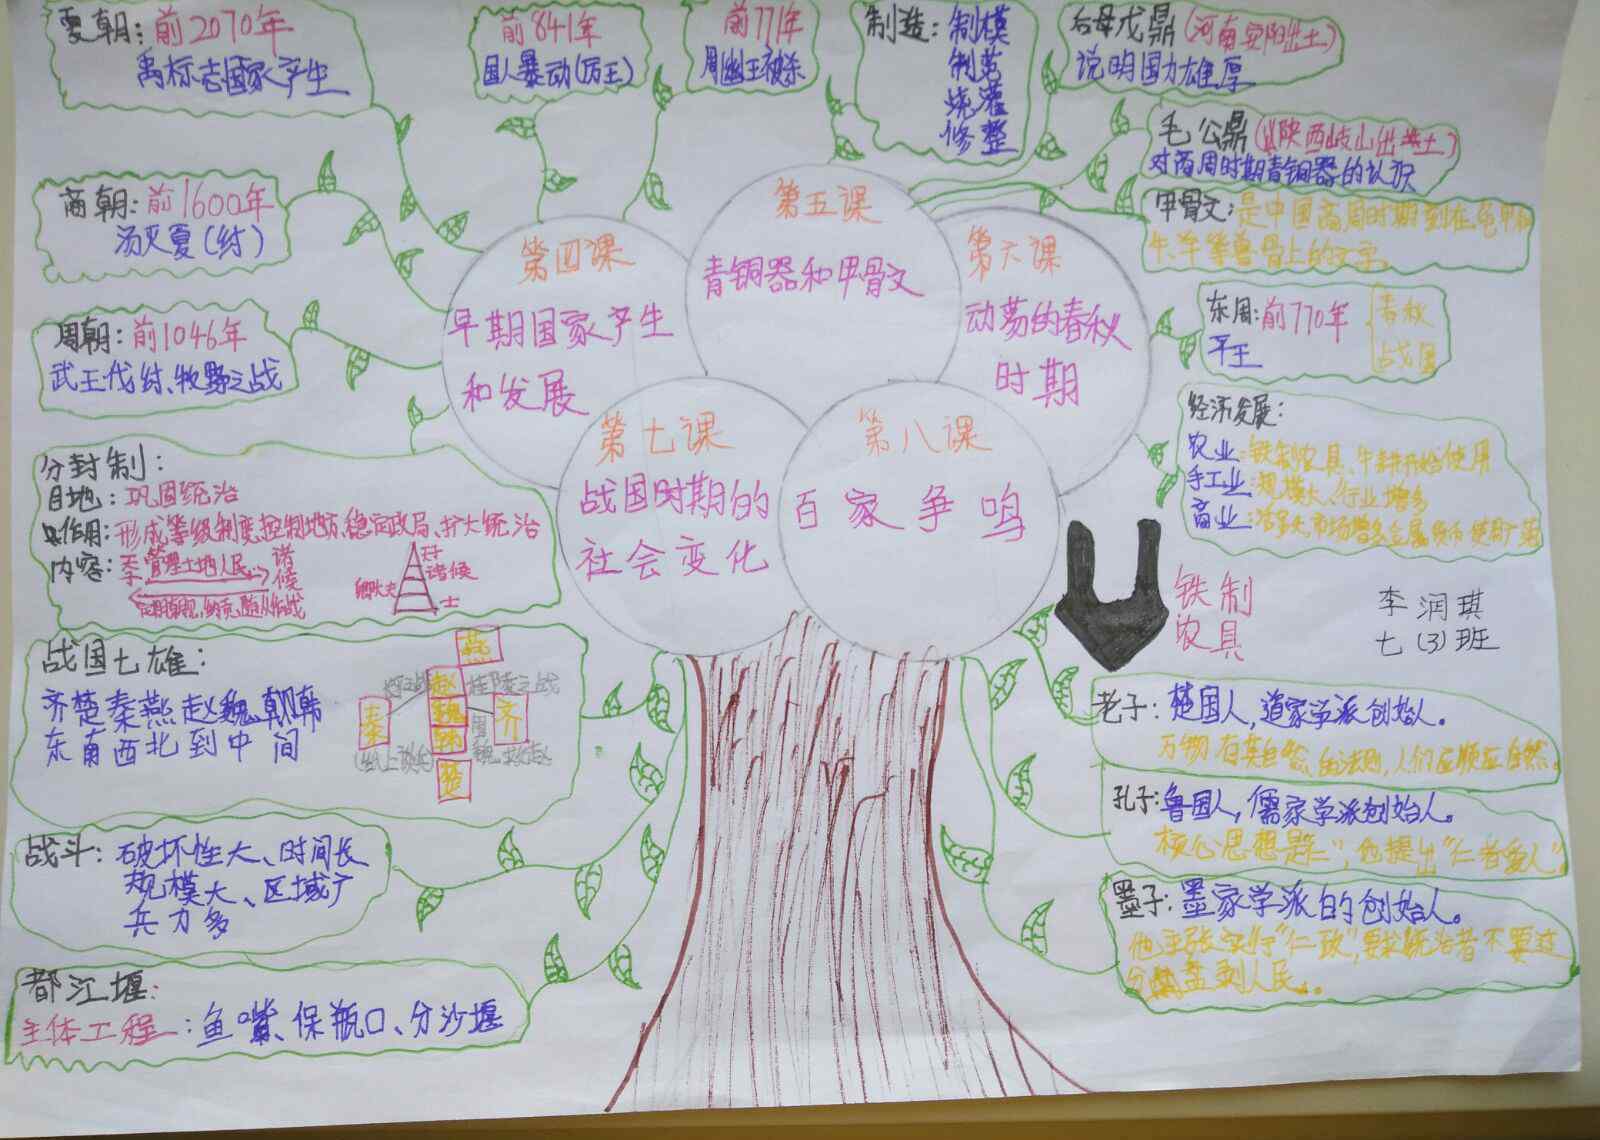 夏朝：前2070年
禹标志国家产生
前841年
国人暴动(厉王)
前771年
周幽王被杀
制造：制模
制范
烧灌
修整
后母戊鼎(河南安阳出土)
说明国力雄厚
毛公鼎(陕西岐山出土)
对商周时期青铜器的认识
甲骨文：是中国商周时期刻在龟甲和
牛、羊等兽骨上的文字。
商朝：前1600年
汤灭夏(纣)
周朝：前1046年
武王伐纣、牧野之战
第四课
早期国家产生
和发展
第五课
青铜器和甲骨文
第六课
动荡的春秋
时期
第七课
战国时期的
社会变化
第八课
百家争鸣
东周：前770年
平王
春秋
战国
经济发展：
农业：铁制农具、牛耕开始使用
手工业：规模大、行业增多
商业：市场增多金属货币使用广泛
分封制：
目地：巩固统治
作用：形成等级制度控制地方、稳定政局、扩大统治
内容：
管理土地人民
诸候
诸候
士
战国七雄：
齐楚秦燕赵魏韩
东南西北到中间
燕
赵
桂陵之战
秦
魏
齐
韩
楚
铁制
农具
李润琪
七(3)班
战斗：破坏性大、时间长
规模大、区域广
兵力多
都江堰：
主体工程：鱼嘴、保瓶口、分沙堰
老子：楚国人，道家学派创始人。
万物有其自然的法则，人们应顺应自然。
孔子：鲁国人，儒家学派创始人。
核心思想是"仁"，他提出"仁者爱人"
墨子：墨家学派的创始人。
他主张实行"仁政"，要求统治者不要过
分盘剥人民。